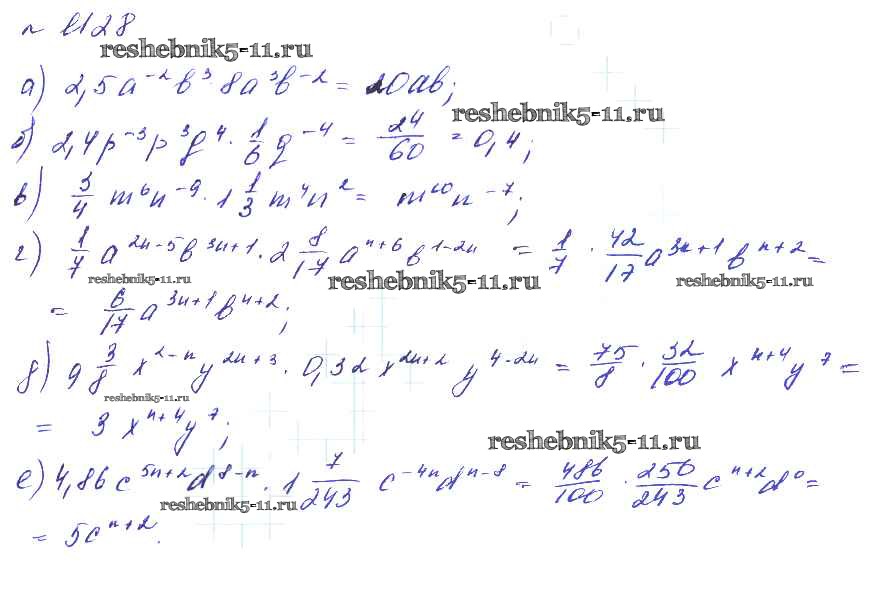 № 1128
reshebnik5-11.ru
а) 2,5a⁻²b³·8a³b⁻² = 20ab;
reshebnik5-11.ru
б) 2,4p⁻³p³q⁴ · 1/6 q⁻⁴ = 24/60 = 0,4;
в) 3/4 m⁶n⁻⁹ · 1 1/3 m⁴n² = m¹⁰n⁻⁷;
г) 1/7 a²ⁿ⁻⁵b³ⁿ⁺¹ · 2 8/17 aⁿ⁺⁶b¹⁻²ⁿ = 1/7 · 42/17 a³ⁿ⁺¹bⁿ⁺² =
reshebnik5-11.ru reshebnik5-11.ru reshebnik5-11.ru
= 6/17 a³ⁿ⁺¹bⁿ⁺²;
д) 9 3/8 x²⁻ⁿy²ⁿ⁺³ · 0,32x²ⁿ⁺²y⁴⁻²ⁿ = 75/8 · 32/100 xⁿ⁺⁴y⁷ =
reshebnik5-11.ru
= 3xⁿ⁺⁴y⁷;
reshebnik5-11.ru
е) 4,86c⁵ⁿ⁺²d⁸⁻ⁿ · 1 7/243 c⁻⁴ⁿdⁿ⁻⁸ = 486/100 · 250/243 cⁿ⁺²d⁰ =
reshebnik5-11.ru
= 5cⁿ⁺².